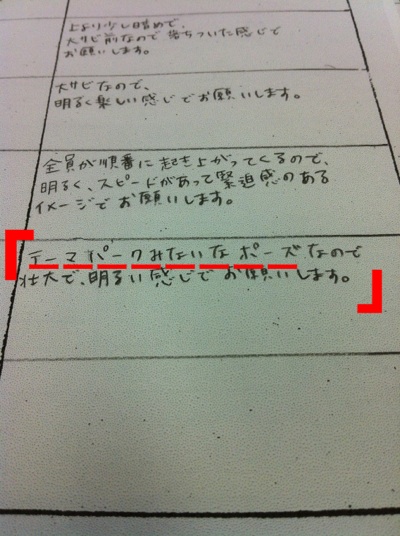 上より少し暗めで、
大サビ前なので落ちついた感じで
お願いします。
大サビなので、
明るく楽しい感じでお願いします。
全員が順番に起き上がってくるので、
明るく、スピードがあって緊迫感のある
イメージでお願いします。
「テーマパークみたいなポーズなので
壮大で、明るい感じでお願いします。」